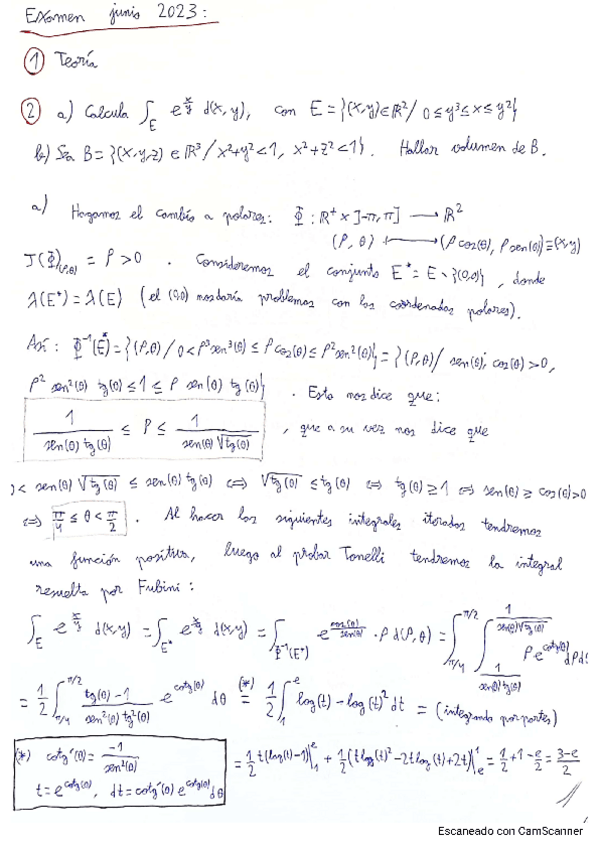 Examen junio 2023:
① Teoría
② a) Calcula ∫_E e^{x/y} d(x,y), con E = {(x,y)∈ℝ² / 0≤y³≤x≤y²}
b) Sea B = {(x,y,z) ∈ ℝ³ / x²+y²<1, x²+z²<1}. Hallar volumen de B.
a) Hagamos el cambio a polares: Φ: ℝ⁺ x ]-π,π] ⟶ ℝ²
(ρ,θ) ⟼ (ρ cos(θ), ρ sen(θ)) ≡ (x,y)
J(Φ)_{(ρ,θ)} = ρ > 0. Consideremos el conjunto E* = E \ {(0,0)}, donde
λ(E*) = λ(E) (el (0,0) nos daría problemas con las coordenadas polares).
Así: Φ⁻¹(E*) = {(ρ,θ) / 0<ρ³sen³(θ) ≤ ρ cos(θ) ≤ ρ²sen²(θ)} = {(ρ,θ) / sen(θ), cos(θ)>0,
ρ² sen²(θ) tg(θ) ≤ 1 ≤ ρ sen(θ) tg(θ)}. Esto nos dice que:
1/(sen(θ) tg(θ)) ≤ ρ ≤ 1/(sen(θ) √tg(θ)), que a su vez nos dice que
0 < sen(θ) √tg(θ) ≤ sen(θ) tg(θ) ⟺ √tg(θ) ≤ tg(θ) ⟺ tg(θ) ≥ 1 ⟺ sen(θ) ≥ cos(θ) >0
⟺ π/4 ≤ θ < π/2. Al hacer las siguientes integrales iteradas tendremos
una función positiva, luego al probar Tonelli tendremos la integral
resuelta por Fubini:
∫_E e^{x/y} d(x,y) = ∫_{E*} e^{x/y} d(x,y) = ∫_{Φ⁻¹(E*)} e^{cos(θ)/sen(θ)} · ρ d(ρ,θ) = ∫_{π/4}^{π/2} ∫_{1/(sen(θ)tg(θ))}^{1/(sen(θ)√tg(θ))} ρ e^{cotg(θ)} dρ d
= 1/2 ∫_{π/4}^{π/2} (tg(θ)-1)/(sen²(θ) tg²(θ)) e^{cotg(θ)} dθ =^{(*)} 1/2 ∫_1^e log(t) - log(t)² dt = (integrando por partes)
(*) cotg'(θ) = -1/sen²(θ)
t = e^{cotg(θ)}, dt = cotg'(θ) e^{cotg(θ)} dθ
= 1/2 t(log(t)-1)|_1^e + 1/2 (t log(t)² - 2t log(t) + 2t)|_e^1 = 1/2 + 1 - e/2 = (3-e)/2
Escaneado con CamScanner